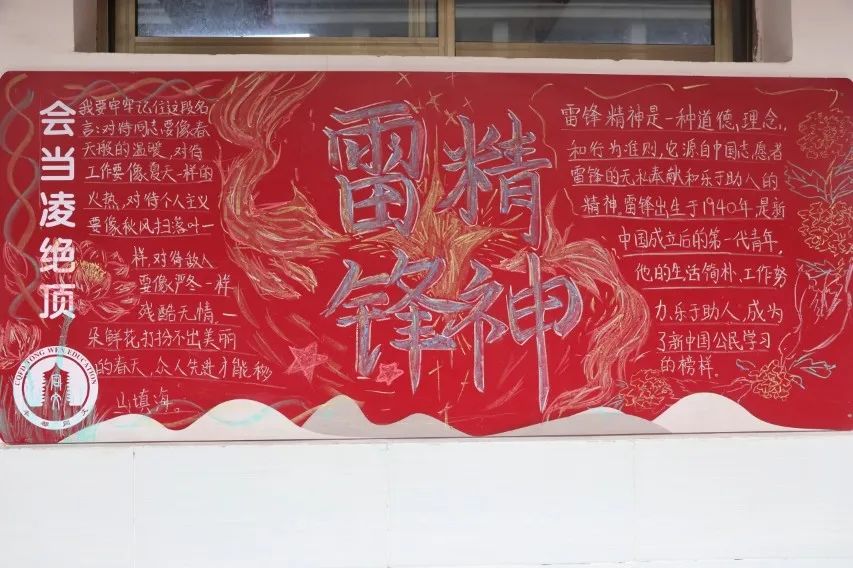 会当凌绝顶
我要牢牢记住这段名
言:对待同志要像春
天般的温暖,对待
工作要像夏天一样的
火热,对待个人主义
要像秋风扫落叶一
样,对待敌人
要像严冬一样
残酷无情,一
朵鲜花打扮不出美丽
的春天,众人先进才能移
山填海。
雷精
锋神
雷锋精神是一种道德、理念、
和行为准则,它源自中国志愿者
雷锋的无私奉献和乐于助人的
精神.雷锋出生于1940年,是新
中国成立后的第一代青年,
他的生活简朴、工作努
力、乐于助人,成为
了新中国公民学习
的榜样。
TONG WEN EDUCATION